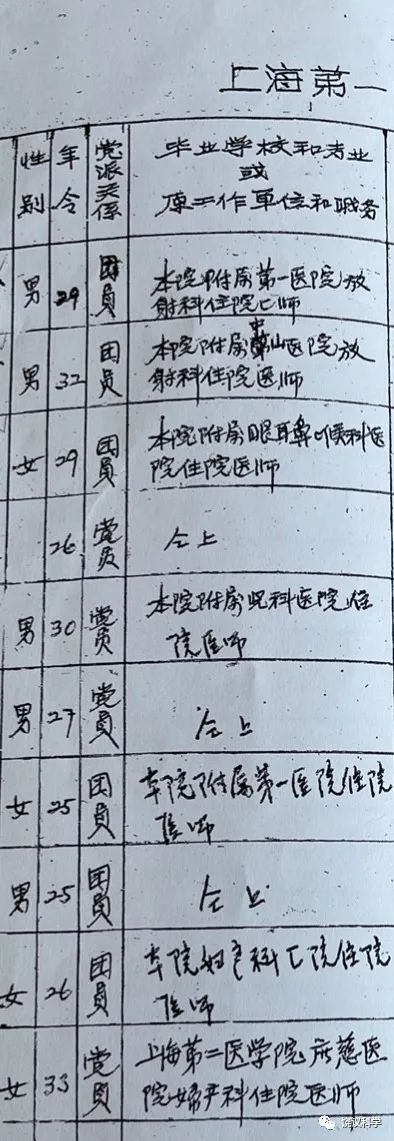 上海第一
性别
年令
党派关係
毕业学校和专业
或
原工作单位和职务
男
29
团员
本院附属第一医院放
射科住院匚师
男
32
团员
本院附属中山医院放
射科住院医师
女
29
团员
本院附属眼耳鼻喉科医
院住院医师
26
党员
仝上
男
30
党员
本院附属児科医院住
院医师
男
27
党员
仝上
女
25
团员
本院附属第一医院住院
医师
男
25
团员
仝上
女
26
团员
本院妇产科匚院住院
医师
女
33
党员
上海第二医学院广慈医
院妇产科住院医师